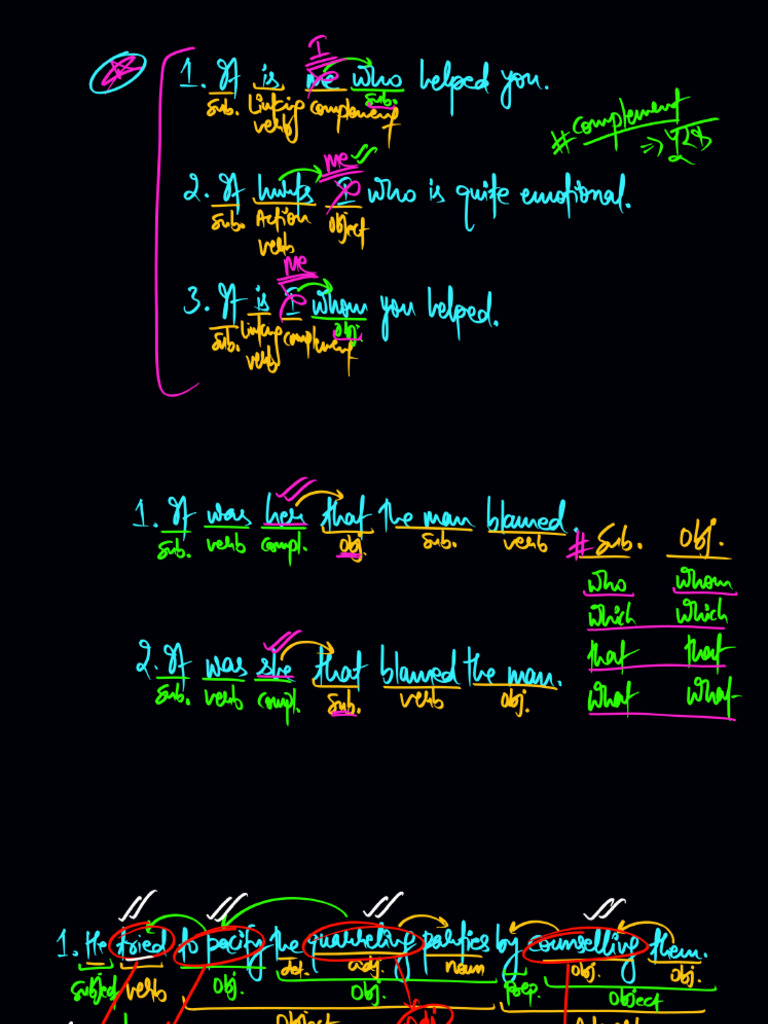 I
1. It is me who helped you.
sub. Linking verb complement sub.
# complement
me
2. It hurts I who is quite emotional.
sub. Action verb object
me
3. It is I whom you helped.
sub. Linking verb complement obj.
1. It was her that the man blamed.
sub. verb compl. obj. sub. verb
# Sub. Obj.
who whom
which which
that that
what what
2. It was she that blamed the man.
sub. verb compl. sub. verb obj.
1. He tried to pacify the quarreling parties by counselling them.
subject verb obj. det. adj. noun prep. obj. obj.
obj. object
object